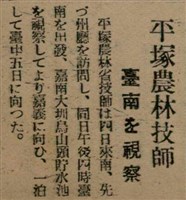 平塚農林技師
臺南を視察
平塚農林省技師は四日來南、先
づ州廳を訪問し、同日午後四時臺
南を出發、嘉南大圳烏山頭貯水池
を視察してより嘉義に向ひ、一泊
して臺中五日に向つた。